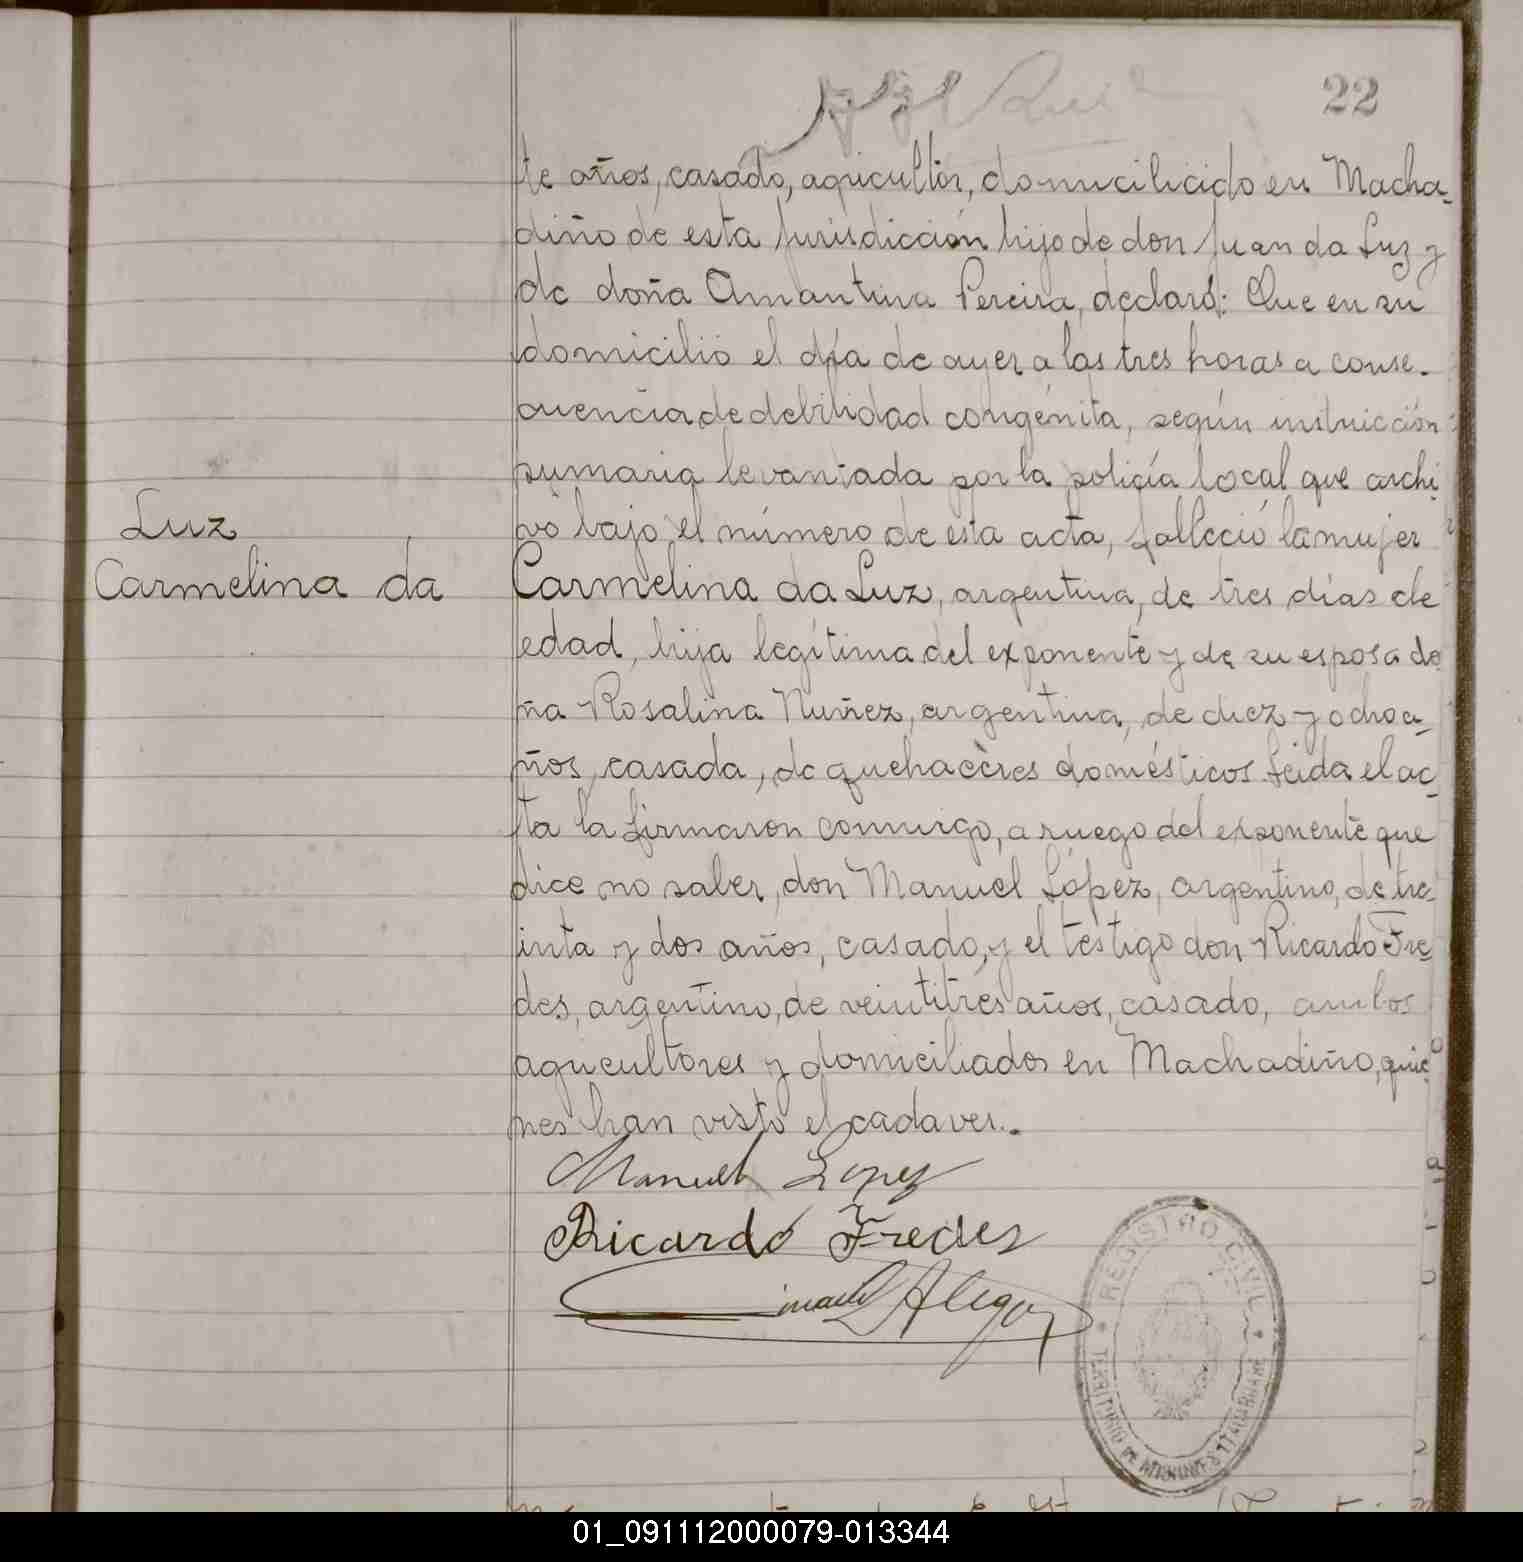 22
te años, casado, agricultor, domiciliado en Macha-
diño de esta jurisdicción hijo de don Juan da Luz y
de doña Amantina Pereira, declaró: Que en su
domicilio el día de ayer a las tres horas a conse-
cuencia de debilidad congénita, según instrucción
sumaria levantada por la policía local que archi-
vo bajo el número de esta acta, falleció la mujer
Luz
Carmelina da
Carmelina da Luz, argentina, de tres días de
edad, hija legítima del exponente y de su esposa do-
ña Rosalina Nuñez, argentina, de diez y ocho a-
ños, casada, de quehacéres domésticos. Leida el ac-
ta la firmaron conmigo, a ruego del exponente que
dice no saber, don Manuel López, argentino, de tre-
inta y dos años, casado, y el testigo don Ricardo Fre-
des, argentino, de veintitres años, casado, ambos
agricultores y domiciliados en Machadiño, quie-
nes han visto el cadaver.-
Manuel Lopez
Ricardo Fredes
REGISTRO CIVIL
TERRITORIO DE MISIONES
01_091112000079-013344